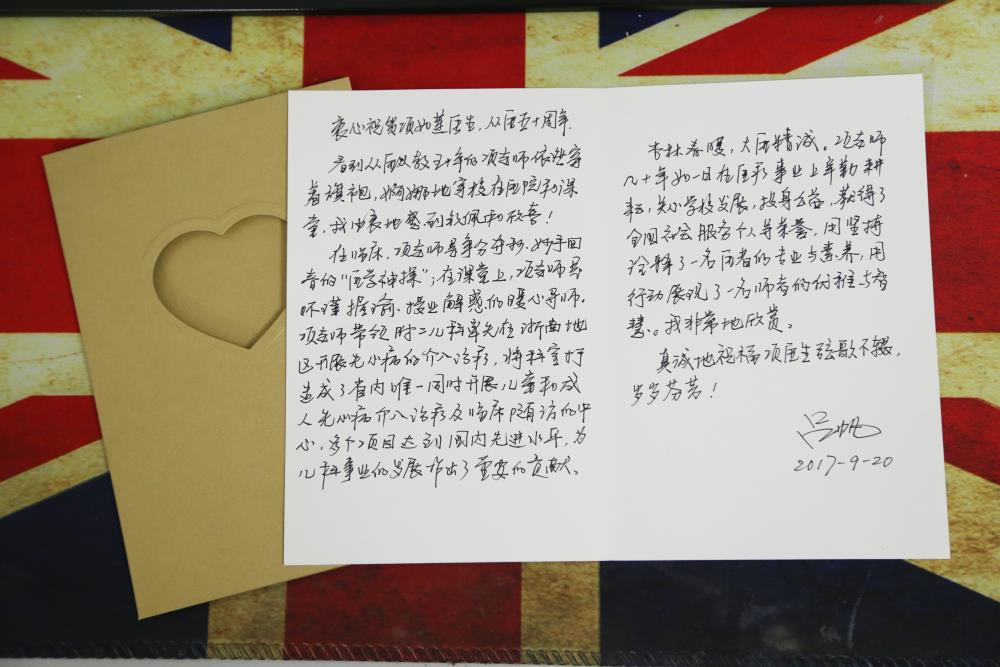 衷心祝贺项如莲医生，从医五十周年。
看到从医从教五十年的项老师依然穿
着旗袍，婀娜地穿梭在医院和课
堂，我由衷地感到钦佩和欣喜！
在临床，项老师是争分夺秒、妙手回
春的“医学神探”；在课堂上，项老师是
怀瑾握瑜、授业解惑的暖心导师。
项老师带领附二儿科率先在浙南地
区开展先心病的介入治疗，将科室打
造成了省内唯一同时开展儿童和成
人先心病介入治疗及临床随访的中
心，这个项目达到国内先进水平，为
儿科事业的发展作出了重要的贡献。
杏林春暖，大医精诚。项老师
几十年如一日在医疗事业上辛勤耕
耘，关心学校发展，投身公益，获得了
全国社会服务个人等荣誉，用坚持
诠释了一名医者的专业与素养，用
行动展现了一名师者的价值与智
慧。我非常地欣赏。
真诚地祝福项医生弦歌不辍，
岁岁芬芳！
吕帆
2017-9-20